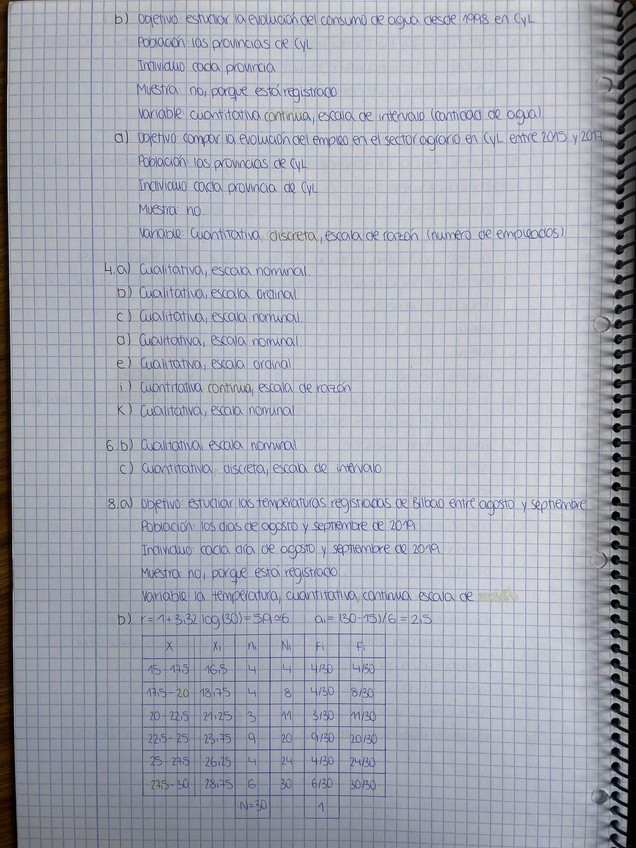 b) Objetivo estudiar la evolución del consumo de agua desde 1998 en CyL
Población las provincias de CyL
Individuo cada provincia
Muestra no, porque está registrado
Variable cuantitativa continua, escala de intervalo (cantidad de agua)
d) Objetivo compar la evolución del empleo en el sector agrario en CyL entre 2015 y 2017
Población las provincias de CyL
Individuo cada provincia de CyL
Muestra no.
Variable cuantitativa discreta, escala de razón (número de empleados)
4.a) Cualitativa, escala nominal.
b) Cualitativa, escala ordinal
c) Cualitativa, escala nominal.
d) Cualitativa, escala nominal
e) Cualitativa, escala ordinal
i) Cuantitativa continua, escala de razón
k) Cualitativa, escala nominal
6.b) Cualitativa, escala nominal
c) Cuantitativa discreta, escala de intervalo
8.a) Objetivo: estudiar las temperaturas registradas de Bilbao entre agosto y septiembre
Población los días de agosto y septiembre de 2019
Individuo cada día de agosto y septiembre de 2019
Muestra no, porque está registrado
Variable la temperatura, cuantitativa, continua escala de
b) r = 1 + 3,32 log(30) = 5,9 ≈ 6 ai = (30-15)/6 = 2,5
X Xi ni Ni fi Fi
15-17,5 16,5 4 4 4/30 4/30
17,5-20 18,75 4 8 4/30 8/30
20-22,5 21,25 3 11 3/30 11/30
22,5-25 23,75 9 20 9/30 20/30
25-27,5 26,25 4 24 4/30 24/30
27,5-30 28,75 6 30 6/30 30/30
N=30 1